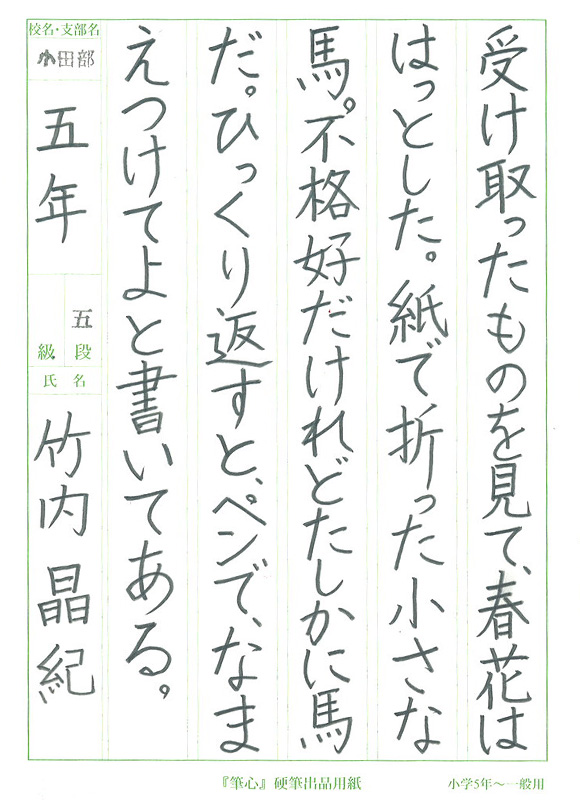 受け取ったものを見て、春花は
はっとした。紙で折った小さな
馬。不格好だけれどたしかに馬
だ。ひっくり返すと、ペンで、なま
えつけてよと書いてある。
校名・支部名
小田部
五年
五段
級
氏名
竹内晶紀
『筆心』硬筆出品用紙
小学5年〜一般用